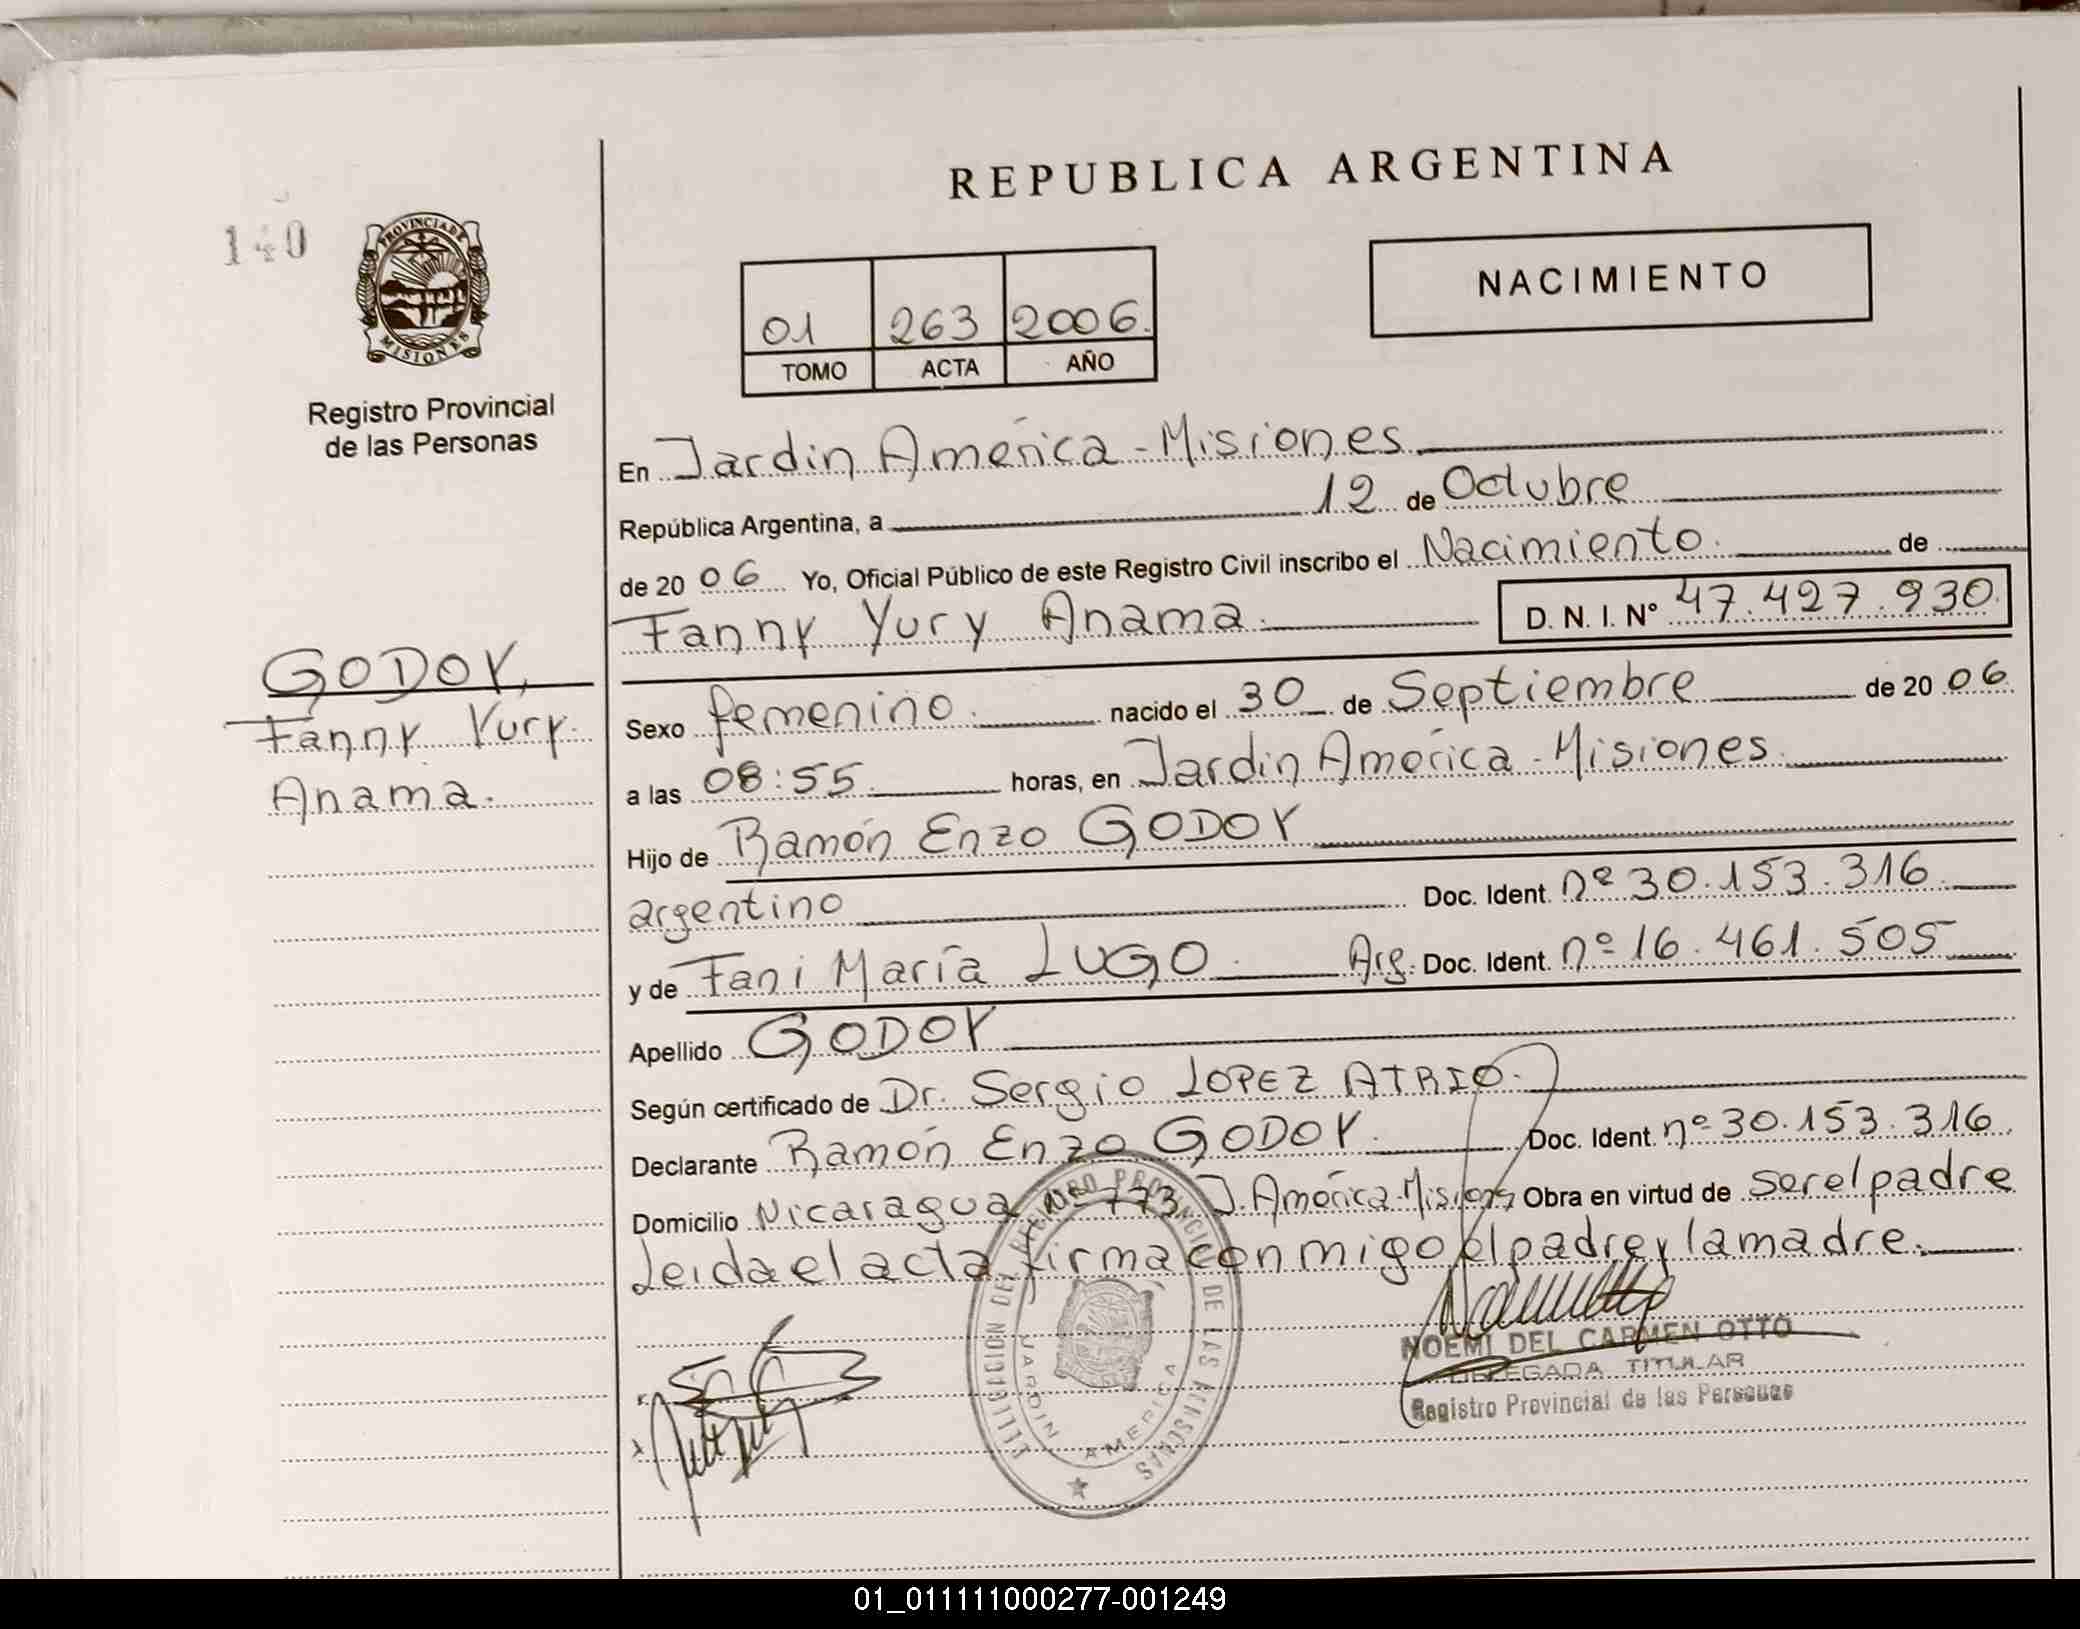 REPUBLICA ARGENTINA
140
PROVINCIA DE
MISIONES
Registro Provincial
de las Personas
NACIMIENTO
01 263 2006.
TOMO ACTA AÑO
En Jardin América - Misiones
República Argentina, a 12 de Octubre
de 20 06 Yo, Oficial Público de este Registro Civil inscribo el Nacimiento. de
Fanny Yury Anama. D. N. I. Nº 47.427.930
GODOY,
Fanny Yury
Anama.
Sexo femenino. nacido el 30 de Septiembre de 20 06
a las 08:55 horas, en Jardin América - Misiones
Hijo de Ramón Enzo GODOY
argentino Doc. Ident. nº 30.153.316
y de Fani María LUGO. Arg. Doc. Ident. nº 16.461.505
Apellido GODOY
Según certificado de Dr. Sergio LOPEZ ATRIO.
Declarante Ramón Enzo GODOY. Doc. Ident. nº 30.153.316
Domicilio Nicaragua Nº 773 J. América-Misiones Obra en virtud de ser el padre
Leida el acta firma conmigo el padre y la madre.
DELEGACION DEL REGISTRO PROVINCIAL DE LAS PERSONAS
JARDIN AMERICA
NOEMI DEL CARMEN OTTO
DELEGADA TITULAR
Registro Provincial de las Personas
01_011111000277-001249